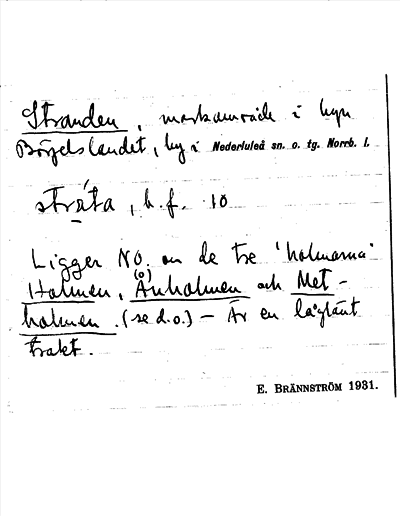 Stranden, markområde i byn
Börjelslandet, by i Nederluleå sn. o. tg. Norrb. l.
stráta, b.f. 10
Ligger NO. om de tre "holmarna"
(o)
Holmen, Änholmen och Met-
holmen. (se d.o.) – Är en låglänt
trakt.
E. BRÄNNSTRÖM 1931.